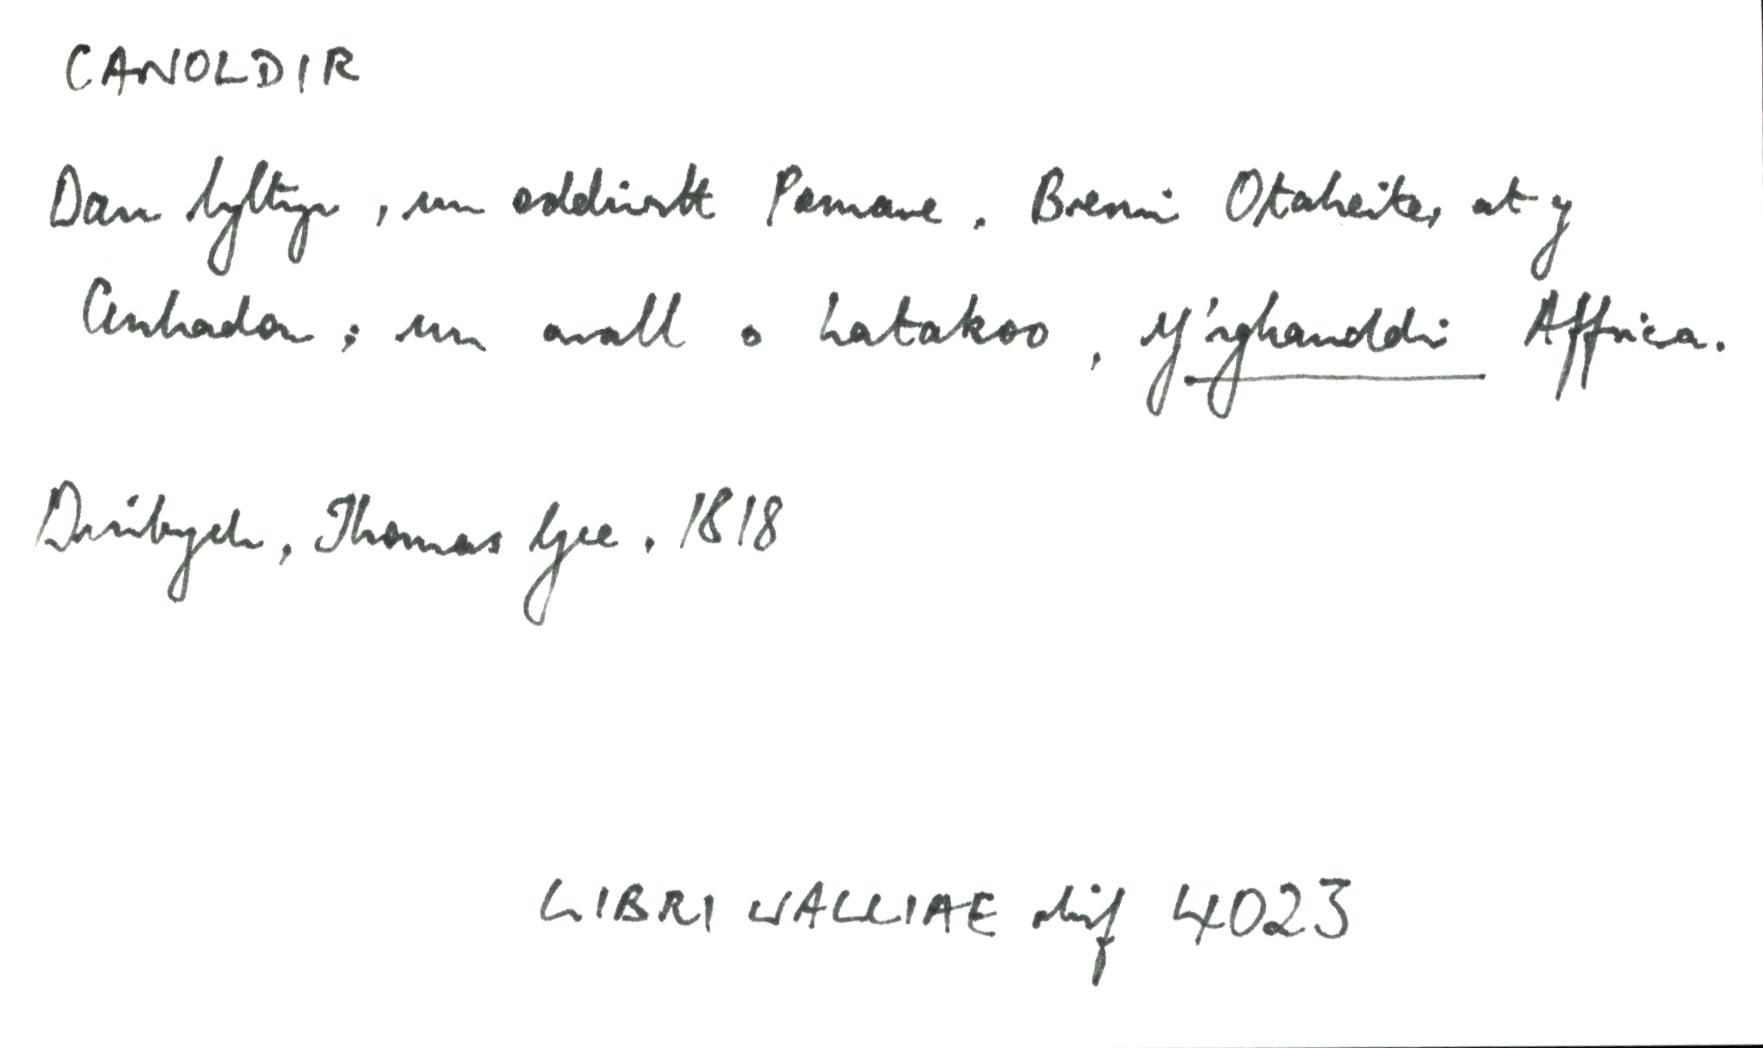 CANOLDIR
Dau lythyr, un oddiwrth Pomare, Brenin Otaheite, at y
Cenhadon; un arall o Latakoo, y'nghanoldir Affrica.
Dinbych, Thomas Gee, 1818
LIBRI WALLIAE rhif 4023